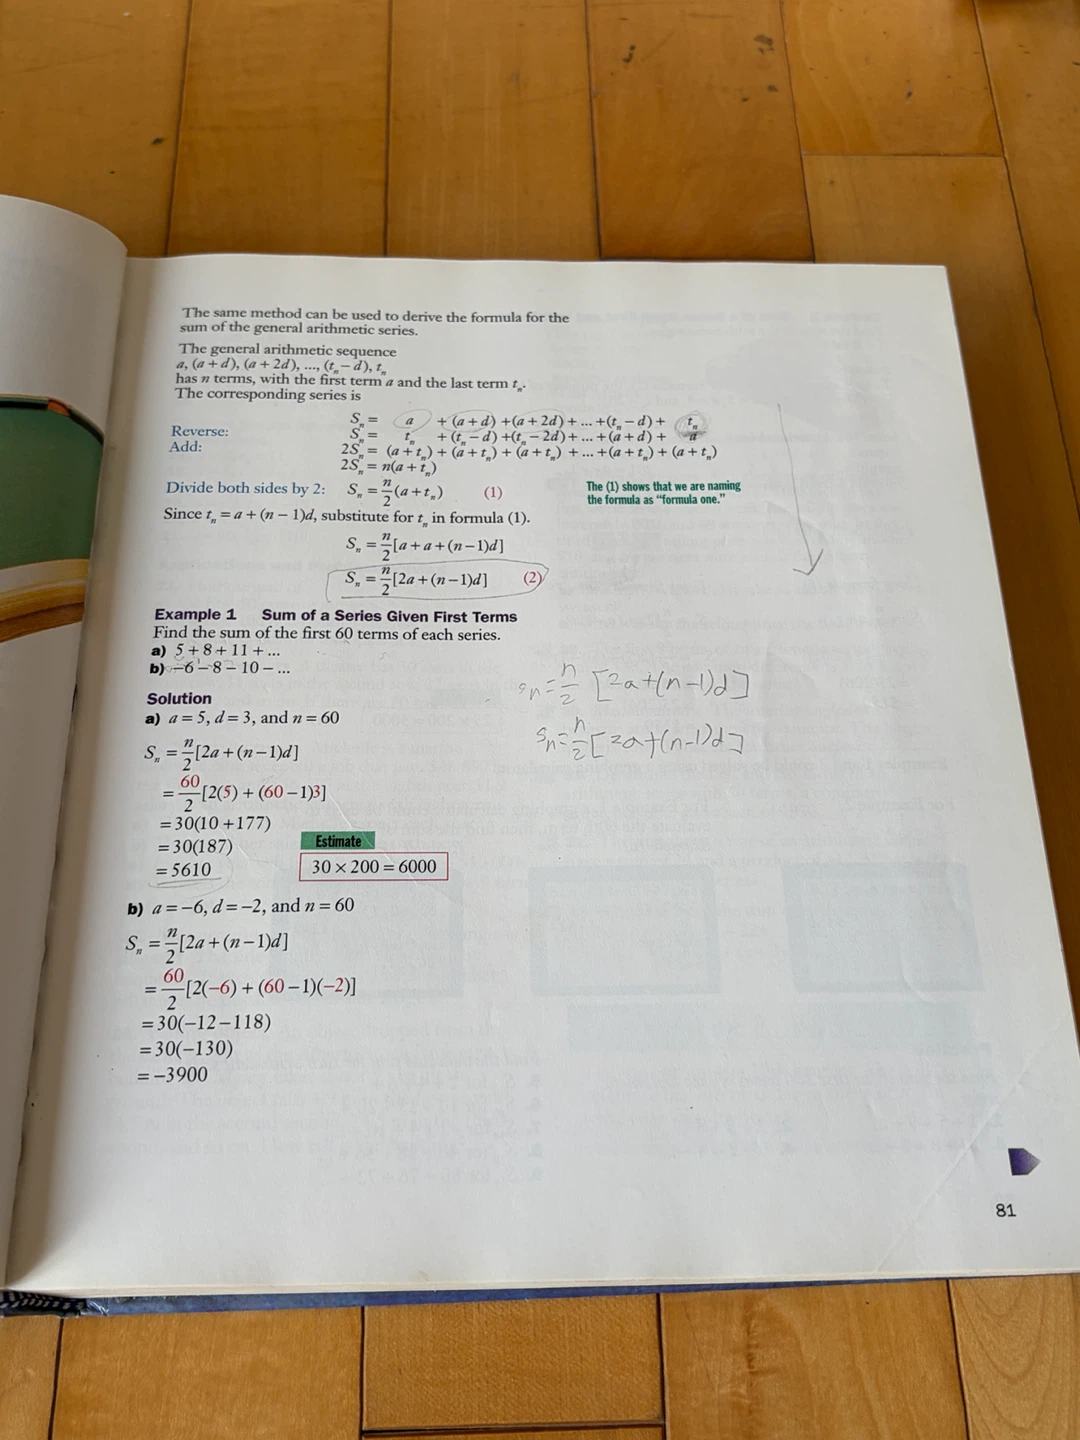 The same method can be used to derive the formula for the
sum of the general arithmetic series.
The general arithmetic sequence
a, (a + d), (a + 2d), ..., (tₙ – d), tₙ
has n terms, with the first term a and the last term tₙ.
The corresponding series is
Sₙ = a + (a + d) + (a + 2d) + ... + (tₙ – d) + tₙ
Reverse: Sₙ = tₙ + (tₙ – d) + (tₙ – 2d) + ... + (a + d) + a
Add: 2Sₙ = (a + tₙ) + (a + tₙ) + (a + tₙ) + ... + (a + tₙ) + (a + tₙ)
2Sₙ = n(a + tₙ)
Divide both sides by 2: Sₙ = n/2 (a + tₙ) (1)
The (1) shows that we are naming
the formula as “formula one.”
Since tₙ = a + (n – 1)d, substitute for tₙ in formula (1).
Sₙ = n/2 [a + a + (n – 1)d]
Sₙ = n/2 [2a + (n – 1)d] (2)
Example 1 Sum of a Series Given First Terms
Find the sum of the first 60 terms of each series.
a) 5 + 8 + 11 + ...
b) –6 – 8 – 10 – ...
Sn = n/2 [2a+(n-1)d]
Sn = n/2 [2a+(n-1)d]
Solution
a) a = 5, d = 3, and n = 60
Sₙ = n/2 [2a + (n – 1)d]
= 60/2 [2(5) + (60 – 1)3]
= 30(10 + 177)
= 30(187)
= 5610
Estimate
30 × 200 = 6000
b) a = –6, d = –2, and n = 60
Sₙ = n/2 [2a + (n – 1)d]
= 60/2 [2(–6) + (60 – 1)(–2)]
= 30(–12 – 118)
= 30(–130)
= –3900
81